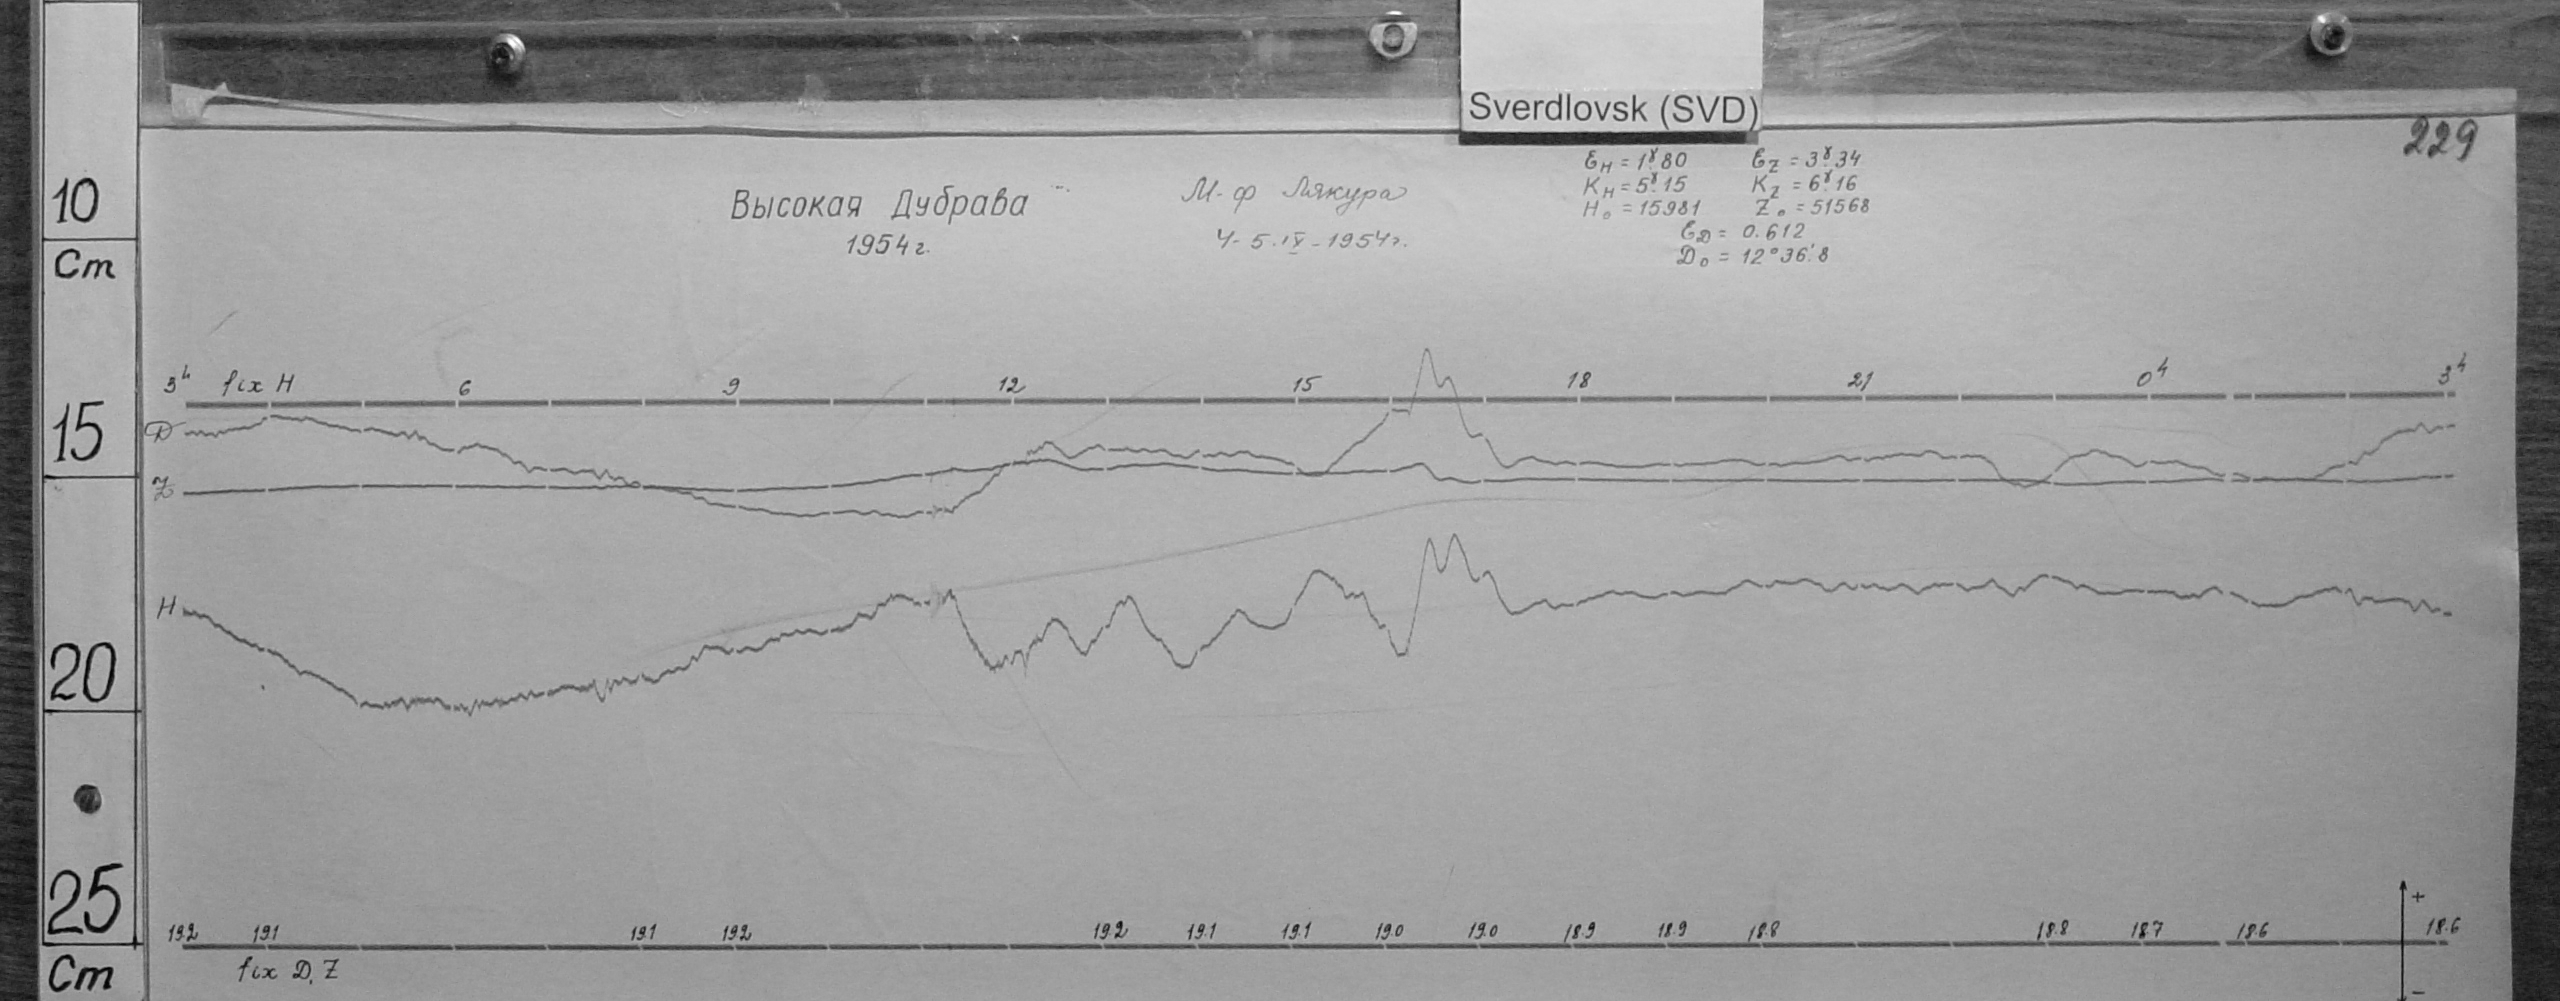 Sverdlovsk (SVD)
229
Высокая Дубрава
1954 г.
М-ф Лякура
4-5.IX-1954г.
Ɛн = 1.ˠ80 Ɛz = 3.ˠ34
Kн = 5.ˠ15 Kz = 6.ˠ16
H₀ = 15981 Z₀ = 51568
ƐD = 0.612
D₀ = 12°36.'8
10
Cm
15
20
25
Cm
3ʰ fix H 6 9 12 15 18 21 0ʰ 3ʰ
D
Z
H
+
19.2 19.1 19.1 19.2 19.2 19.1 19.1 19.0 19.0 18.9 18.9 18.8 18.8 18.7 18.6 18.6
fix D, Z
-